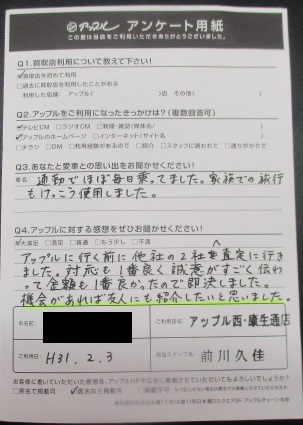 アップル アンケート用紙
この度は当店をご利用いただきありがとうございました。
Q1.買取店利用について教えて下さい!
☑買取店を初めて利用
□過去に買取店を利用したことがある
利用した店舗: アップル( )店 その他( )
Q2.アップルをご利用になったきっかけは?(複数回答可)
☑テレビCM □ラジオCM □新聞・雑誌(媒体名 )
☑アップルのホームページ □インターネット(サイト名 )
□チラシ □DM □利用経験があるので □紹介 □スタッフに誘われて □通りがかりで
Q3.あなたと愛車との思い出をお聞かせください!
車名:
通勤でほぼ毎日乗ってました。家族での旅行
もけっこう使用しました。
Q4.アップルに対する感想をぜひお聞かせください!
☑大満足 □満足 □普通 □もう少し □不満
アップルに行く前に他社の2社を査定に行き
ました。対応も1番良く誠意がすごく伝わ
って金額も1番良かったので即決しました。
機会があれば友人にも紹介したいと思いました。
お名前:
ご利用店名:
アップル西・康生通店
ご利用日:
H31.2.3
担当スタッフ名
前川久佳
お客様に書いていただいた感想を、アップルHPや広告に掲載させていただいてもよろしいでしょうか?
□実名で掲載可 ☑匿名なら掲載可 □掲載不可